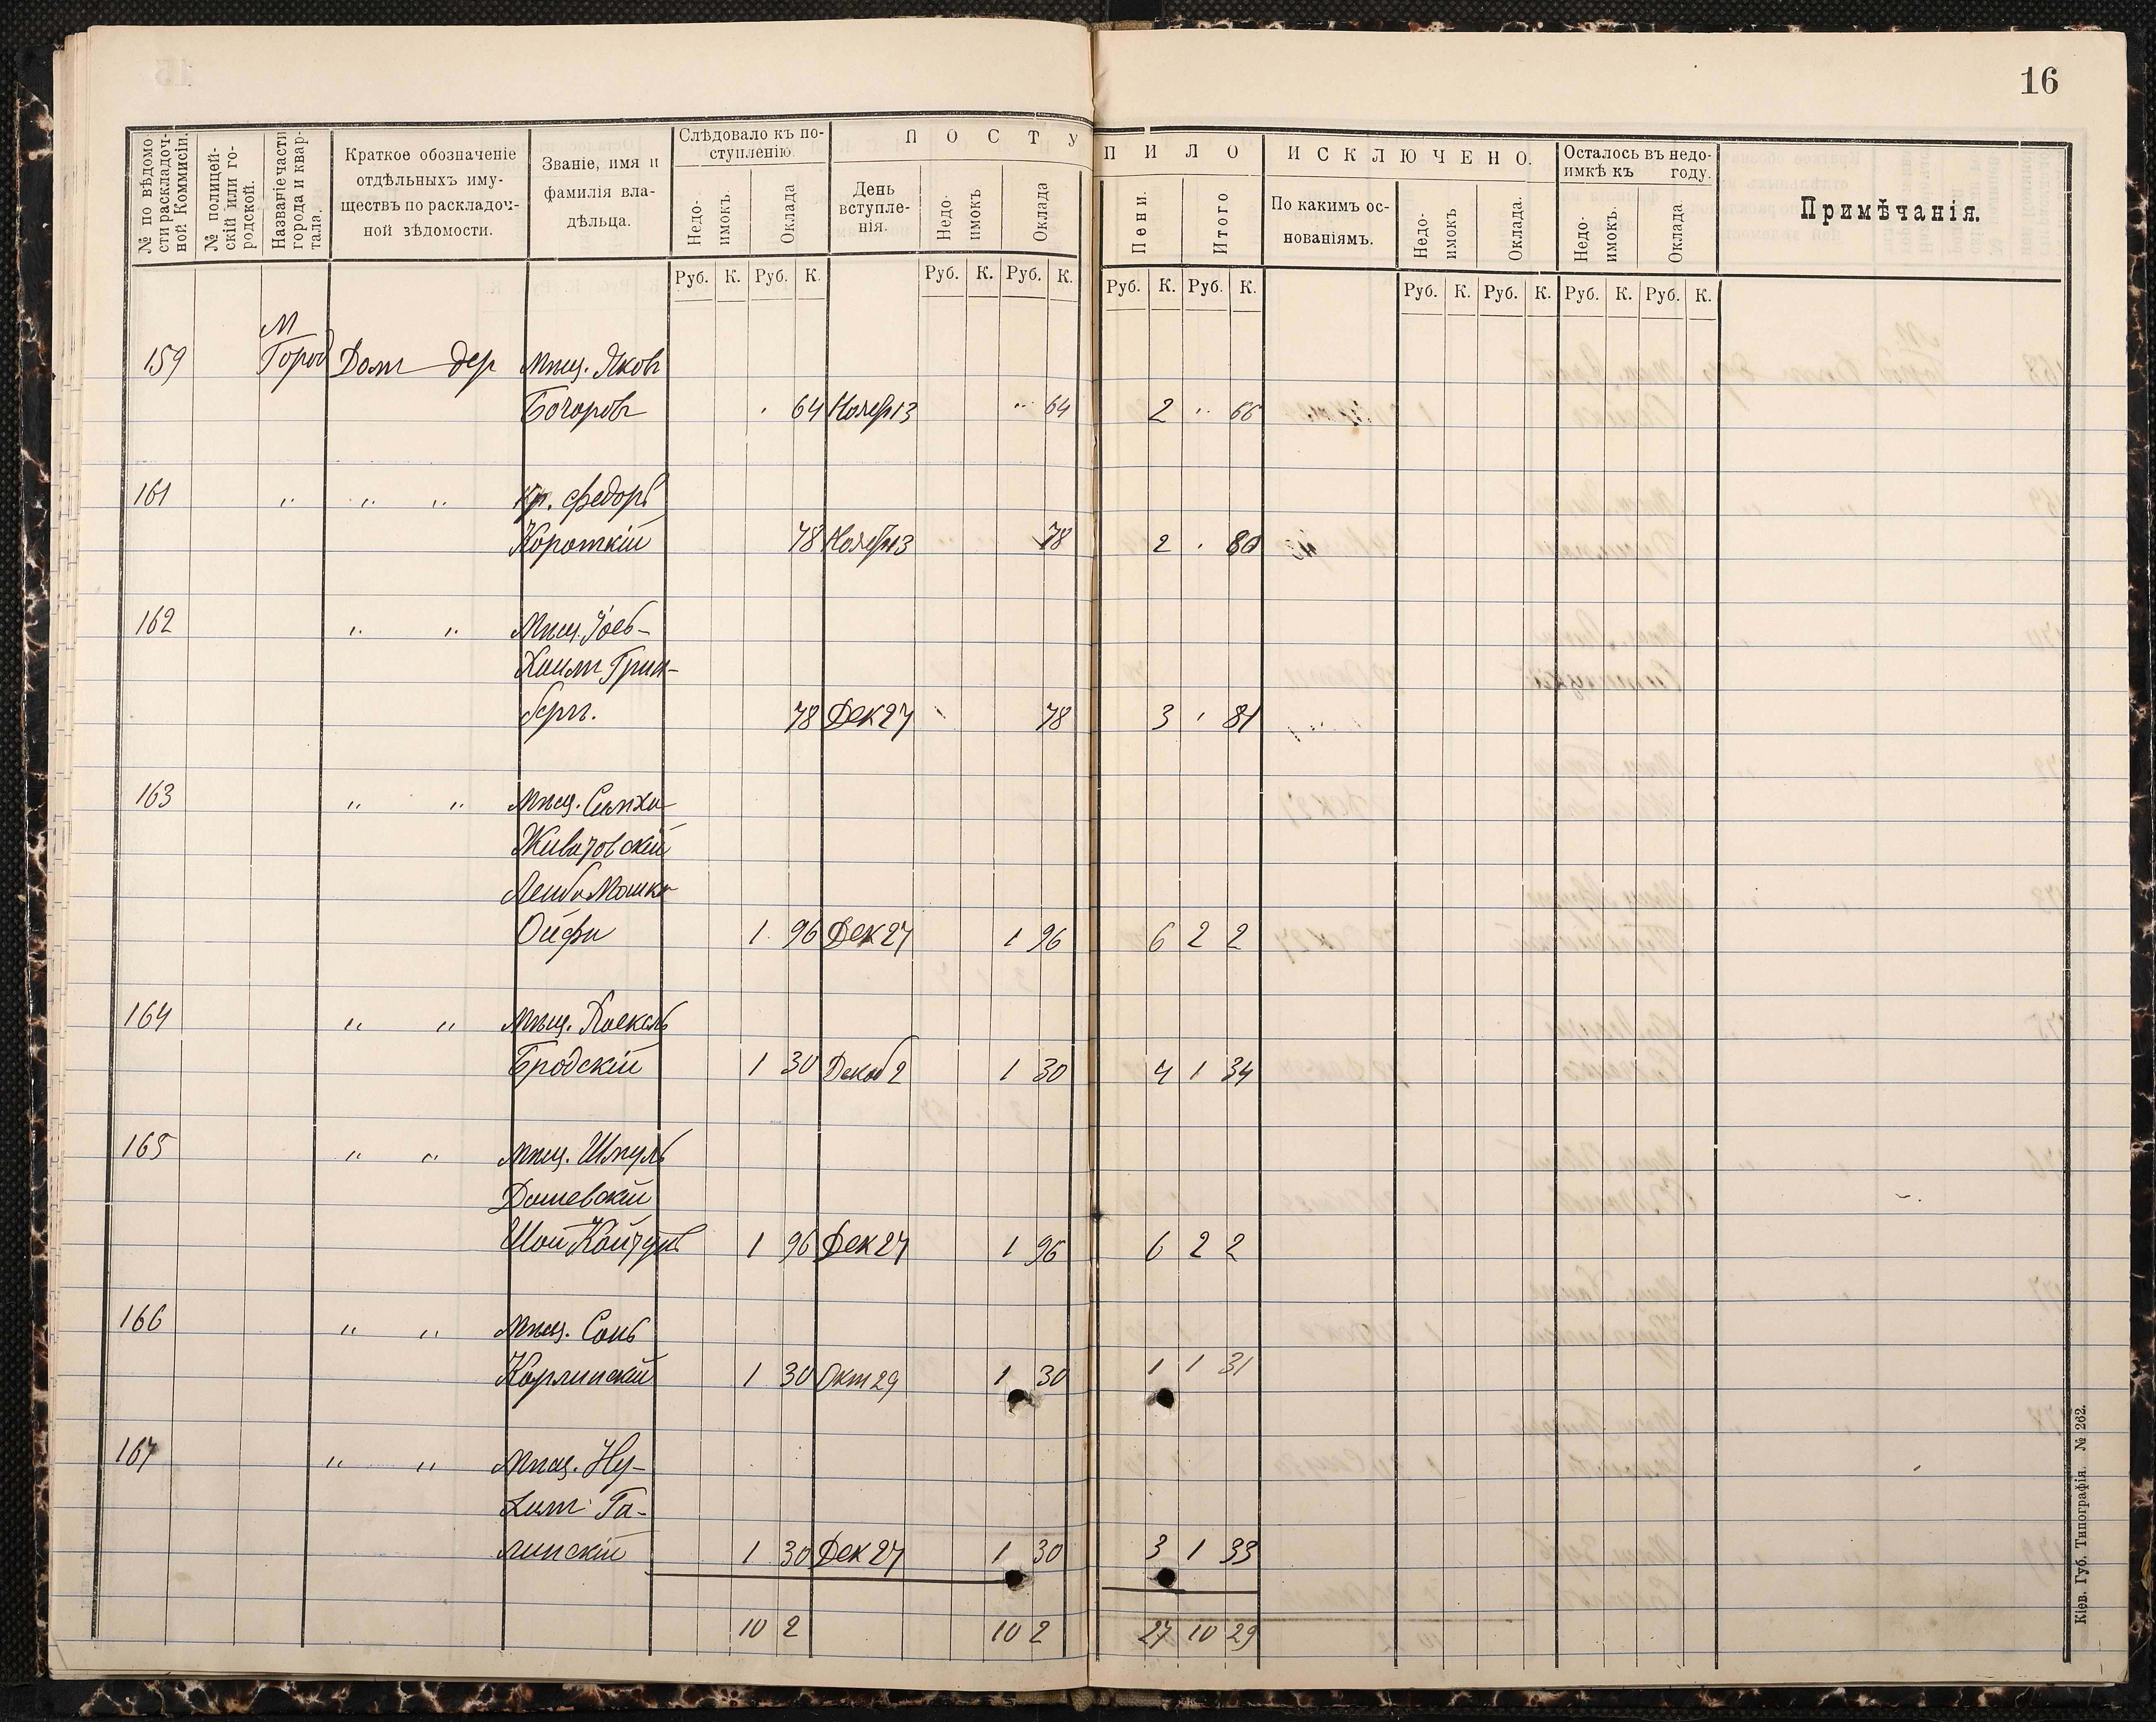 16
№ по вѣдомости раскладочной Коммисіи.
№ полицейскій или городской.
Названіе части города и квартала.
Краткое обозначеніе отдѣльныхъ имуществъ по раскладочной вѣдомости.
Званіе, имя и фамилія владѣльца.
Слѣдовало къ поступленію.
Недоимокъ.
Оклада
ПОСТУПИЛО
День вступленія.
Недоимокъ
Оклада
Пени.
Итого
ИСКЛЮЧЕНО.
По какимъ основаніямъ.
Недоимокъ
Оклада.
Осталось въ недоимкѣ къ году.
Недоимокъ.
Оклада.
Примѣчанія.
Руб. К. Руб. К. Руб. К. Руб. К. Руб. К. Руб. К. Руб. К. Руб. К. Руб. К. Руб. К.
М
159 Город Дом дер Мѣщ. Яковъ
64 Ноябр 13 64 2 66
161 " " " Кр. Федоръ
Короткій 78 Ноябр 13 78 2 80
162 " " Мѣщ.
Хаим Грин-
берг. 78 Дек 27 78 3 81
163 " " Мѣщ. Симха
Животовскій
Лейба Мошко
1 96 Дек 27 1 96 6 2 2
164 " " Мѣщ. Хаскель
Бродскій 1 30 Декаб 2 1 30 4 1 34
165 " " Мѣщ. Шмуль
Дашевскій
1 96 Дек 27 1 96 6 2 2
166 " " Мѣщ.
Карлинскій 1 30 Окт 29 1 30 1 1 31
167 " " Мѣщ. Ну-
хим Га-
линскій 1 30 Дек 27 1 30 3 1 33
10 2 10 2 27 10 29
Кіев. Губ. Типографія. № 262.